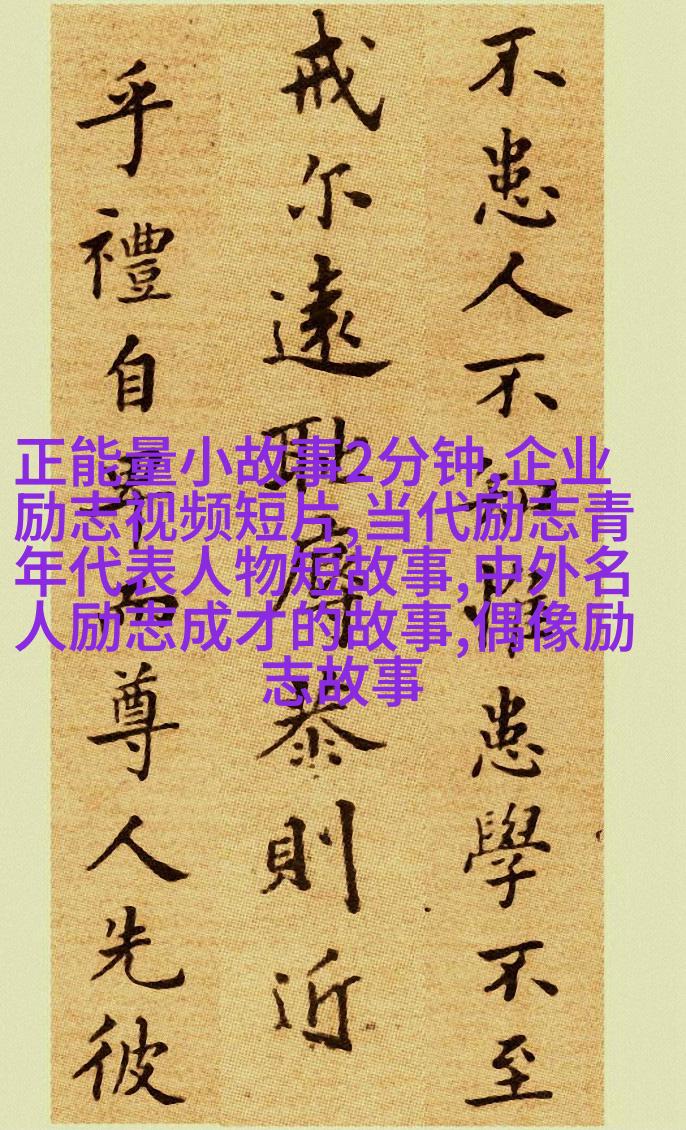 不患人不知惟患學不至
戒尔遠耻辱恭則近
乎禮自卑而尊人先彼
正能量小故事2分钟,企业
励志视频短片,当代励志青
年代表人物短故事,中外名
人励志成才的故事,偶像励
志故事